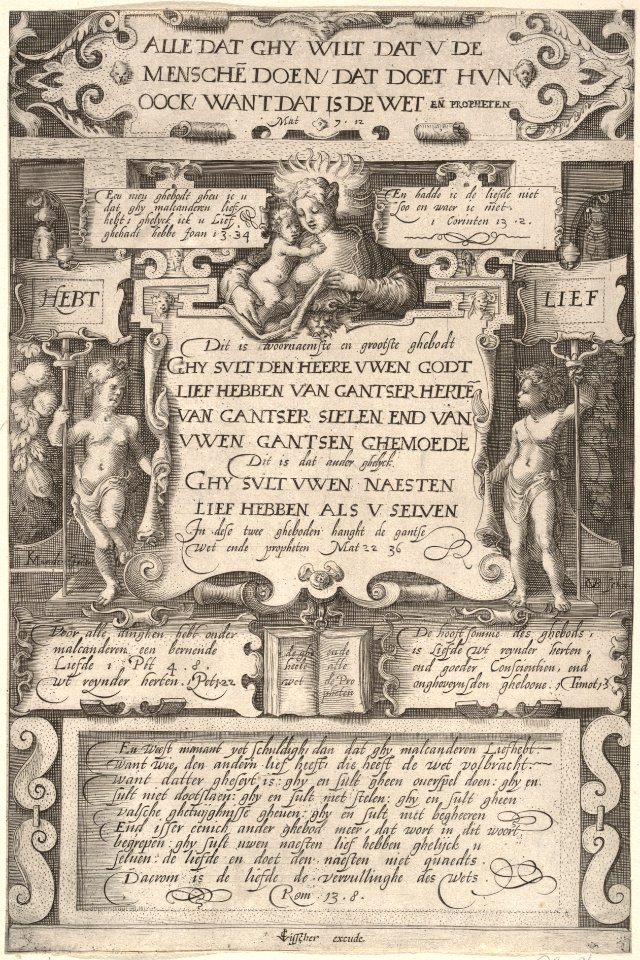 ALLE DAT GHY WILT DAT V DE
MENSCHĒ DOEN/ DAT DOET HVN
OOCK/ WANT DAT IS DE WET EÑ PROPHETEN
Mat 7. 12
Een nieu ghebodt gheu ic u
dat ghy malcanderen lief
hebt: ghelyck ick u Lief
ghehadt hebbe Joan 13.34
En hadde ic de liefde niet
soo en waer ic niet.
1 Corinten 13.2.
HEBT
LIEF
Dit is t'voornaemste en grootste ghebodt
GHY SVLT DEN HEERE VWEN GODT
LIEF HEBBEN VAN GANTSER HERTĒ
VAN GANTSER SIELEN END VAN
VWEN GANTSEN GHEMOEDE
Dit is dat ander ghelyck.
GHY SVLT VWEN NAESTEN
LIEF HEBBEN ALS V SELVEN
In dese twee gheboden hanght de gantse
Wet ende propheten Mat 22 36
Voor alle dinghen hebt onder
malcanderen een bernende
Liefde 1 Pet 4.8.
wt reynder herten. 1 Pet 1.22
de ghe
heele
wet
ende
alle
de Pro
pheten
De hooftsomme des ghebods,
is Liefde wt reynder herten,
end goeder Conscientien, end
ongheveynsden gheloove. 1 Timot 1.5
En Weest niemant yet schuldigh dan dat ghy malcanderen Liefhebt
want wie den andern lief heeft die heeft de wet volbracht
Want datter gheseyt is: ghy en sult gheen overspel doen: ghy en
sult niet dootslaen: ghy en sult niet stelen: ghy en sult gheen
valsche ghetuyghnisse gheuen: ghy en sult niet begheeren
End isser eenich ander ghebod meer, dat wort in dit woort
begrepen: ghy sult uwen naesten lief hebben ghelijck u
seluen: de liefde en doet den naesten niet quaedts.
Daerom is de liefde de vervullinghe des Wets.
Rom. 13. 8.
CVisscher excude.